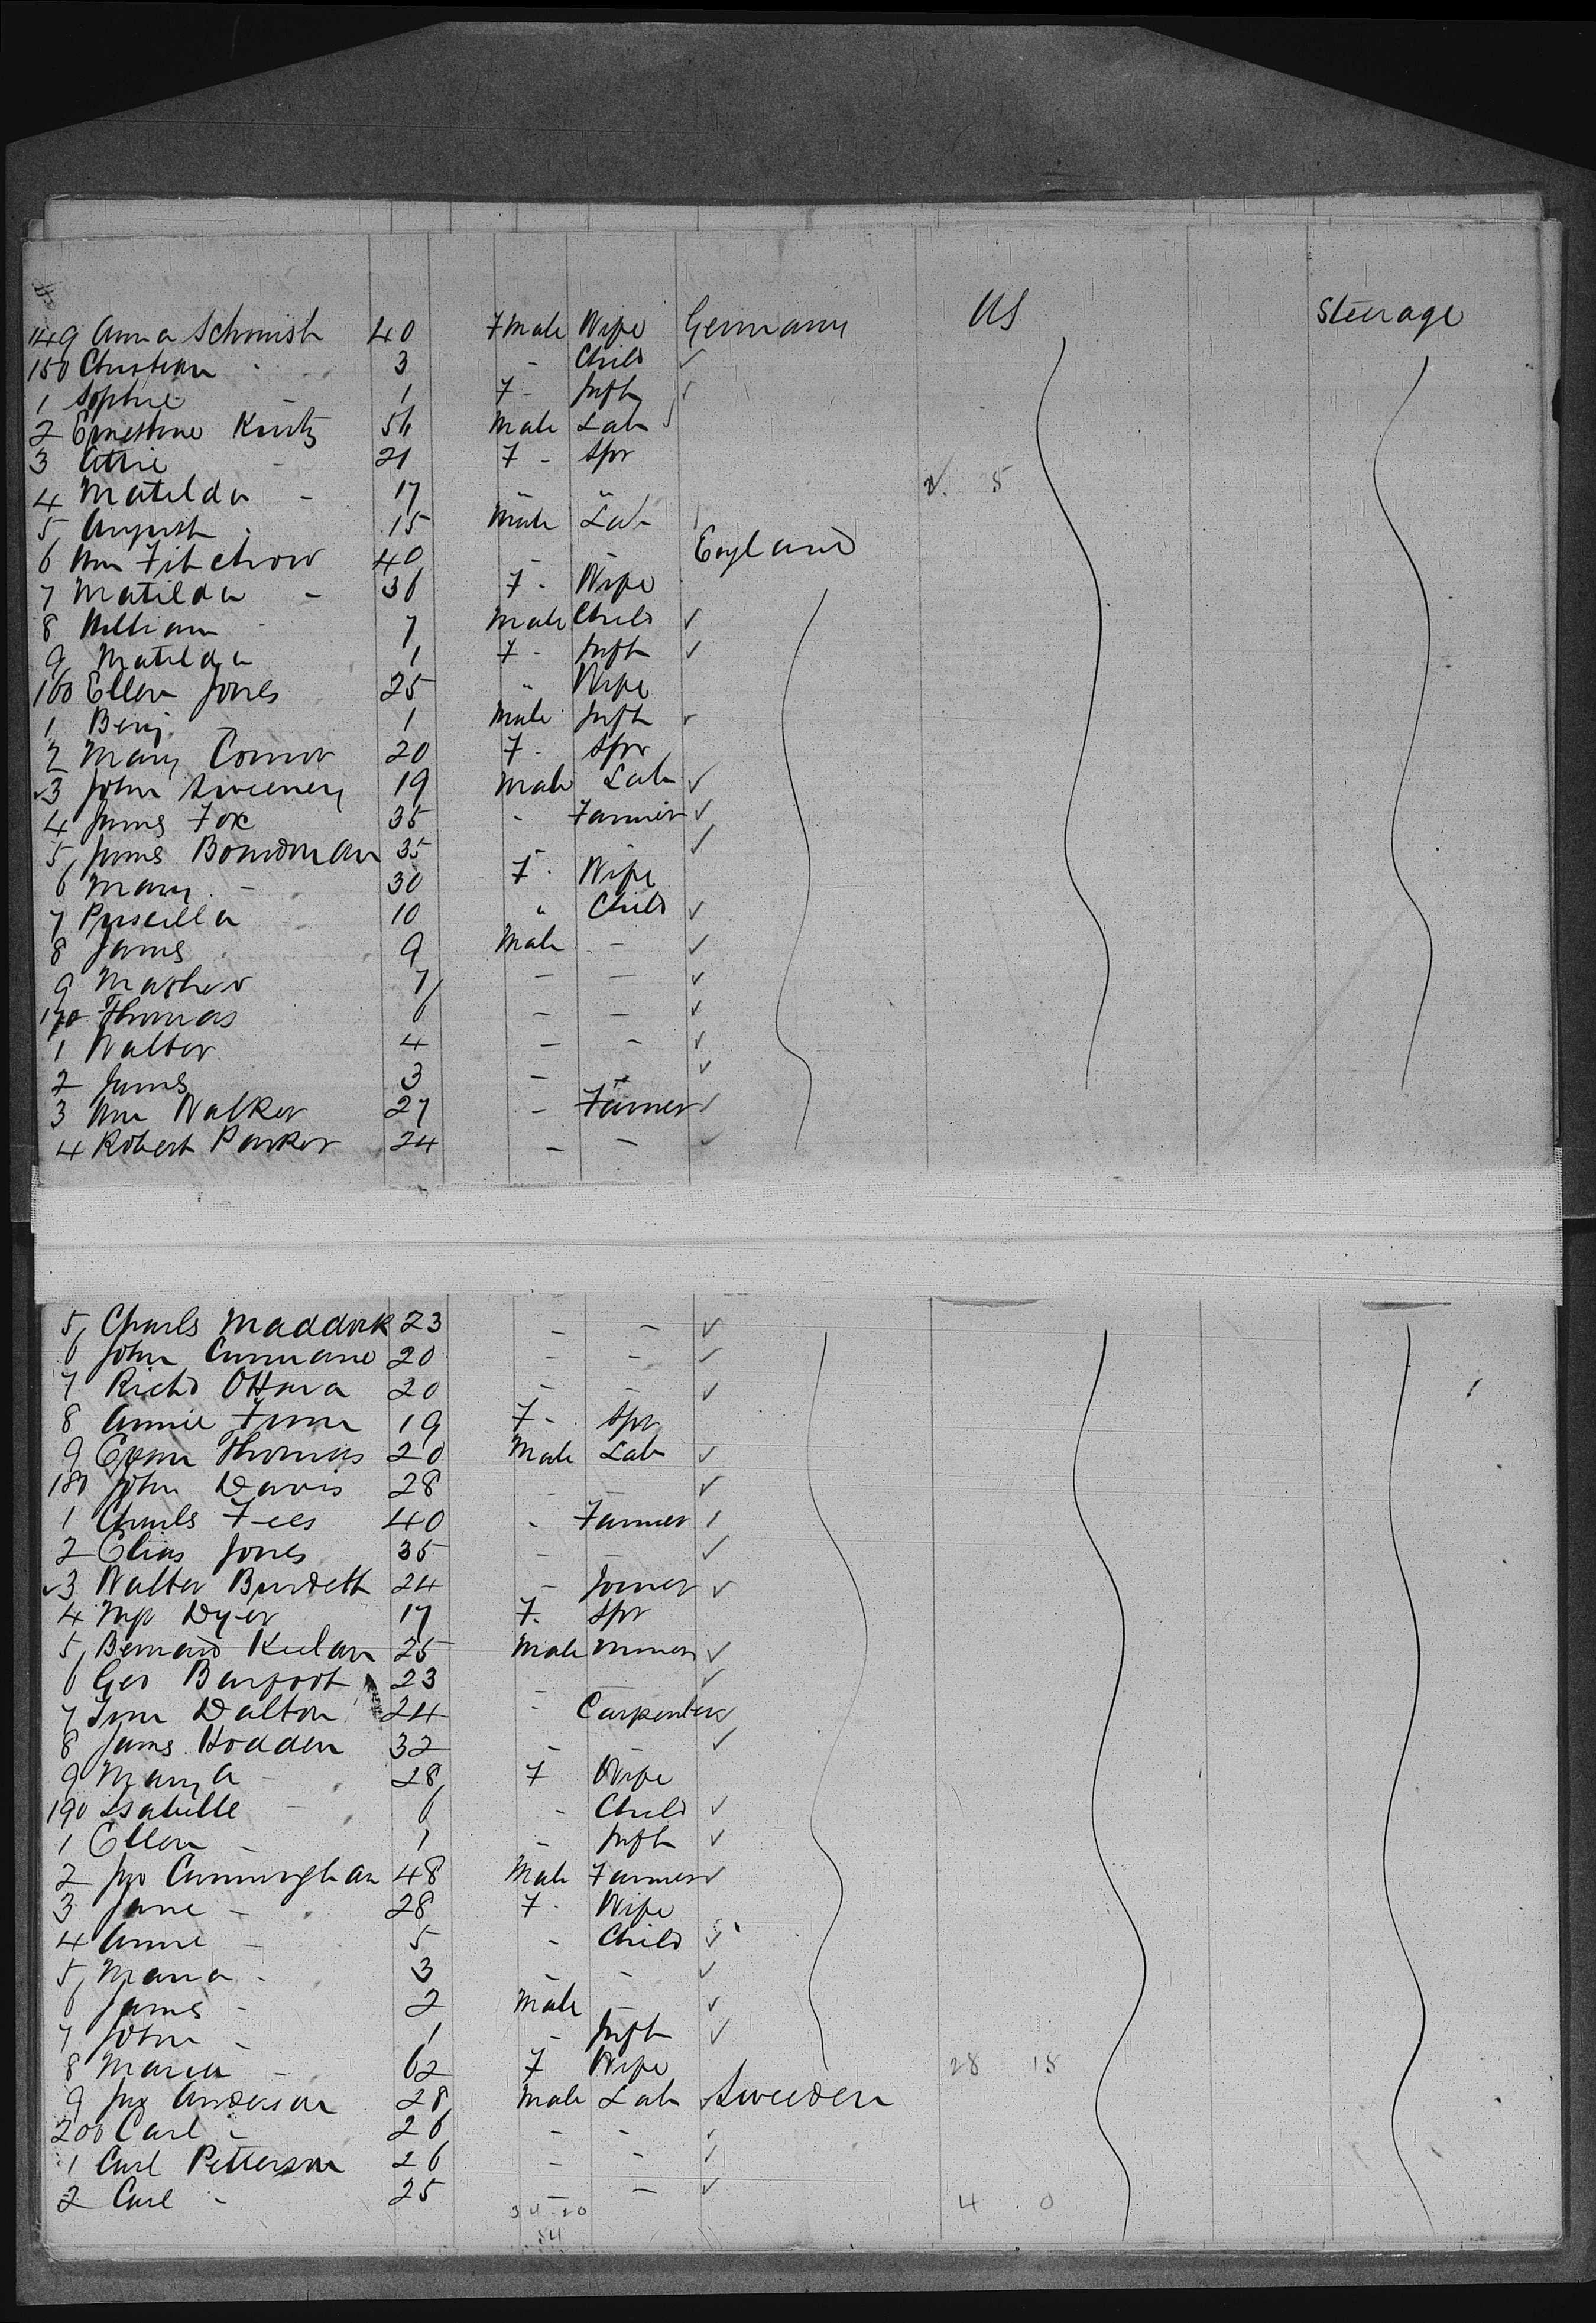 149 Anna Schmish 40 Fmale Wife Germany US Steerage
150 Christian - 3 - Child ✓
1 Sophie - 1 F - Inft ✓
2 Ernestine Kurtz 56 Male Lab
3 Attie - 21 F - Spr
4 Matilda - 17 " " 2. 5
5 August - 15 Male Lab
6 Wm Fitchow 40 - - England
7 Matilda - 36 F - Wife
8 William - 7 Male Child ✓
9 Matilda 1 F - Inft ✓
160 Ellen Jones 25 " Wife
1 Benj - 1 Male Inft ✓
2 Mary Connor 20 F - Spr
✓3 John Sweeney 19 Male Lab ✓
4 James Fox 35 - Farmer ✓
5 James Boardman 35 - - ✓
6 Mary - 30 F - Wife
7 Pyscilla 10 " Child ✓
8 James 9 Male - ✓
9 Mathew 7 - - ✓
170 Thomas 6 - - ✓
1 Walter 4 - - ✓
2 James 3 - - ✓
3 Wm Walker 27 - Farmer ✓
4 Robert Parker 24 - - ✓
5 Charls Maddock 23 - - ✓
6 John 20 - - ✓
7 Richd OHara 20 - - ✓
8 Annie Finn 19 F - Spr
9 Evan Thomas 20 Male Lab ✓
180 John Davis 28 - - ✓
1 Charls Fees 40 - Farmer ✓
2 Elias Jones 35 - - ✓
✓3 Walter Burdett 24 - Joiner ✓
4 Dyer 17 F - Spr
5 Bernard Keelan 25 Male Miner ✓
6 Geo Barfoot 23 - - ✓
7 Dalton 24 - Carpenter ✓
8 James Hodden 32 - - ✓
9 Mary A - 28 F Wife
190 Isabelle - 6 - Child ✓
1 Ellen - 1 - Inft ✓
2 Jno Cunningham 48 Male Farmer ✓
3 Jane - 28 F - Wife
4 Anne - 5 - Child ✓
5 Maria - 3 - - ✓
6 James - 2 Male - ✓
7 John - 1 - Inft ✓
8 Maria - 62 F Wife 28 18
9 Jno Anderson 28 Male Lab Sweeden
200 Carl - 26 - - ✓
1 Carl Petterson 26 - - ✓
2 Carl - 25 - - ✓ 4 0
34 20
54